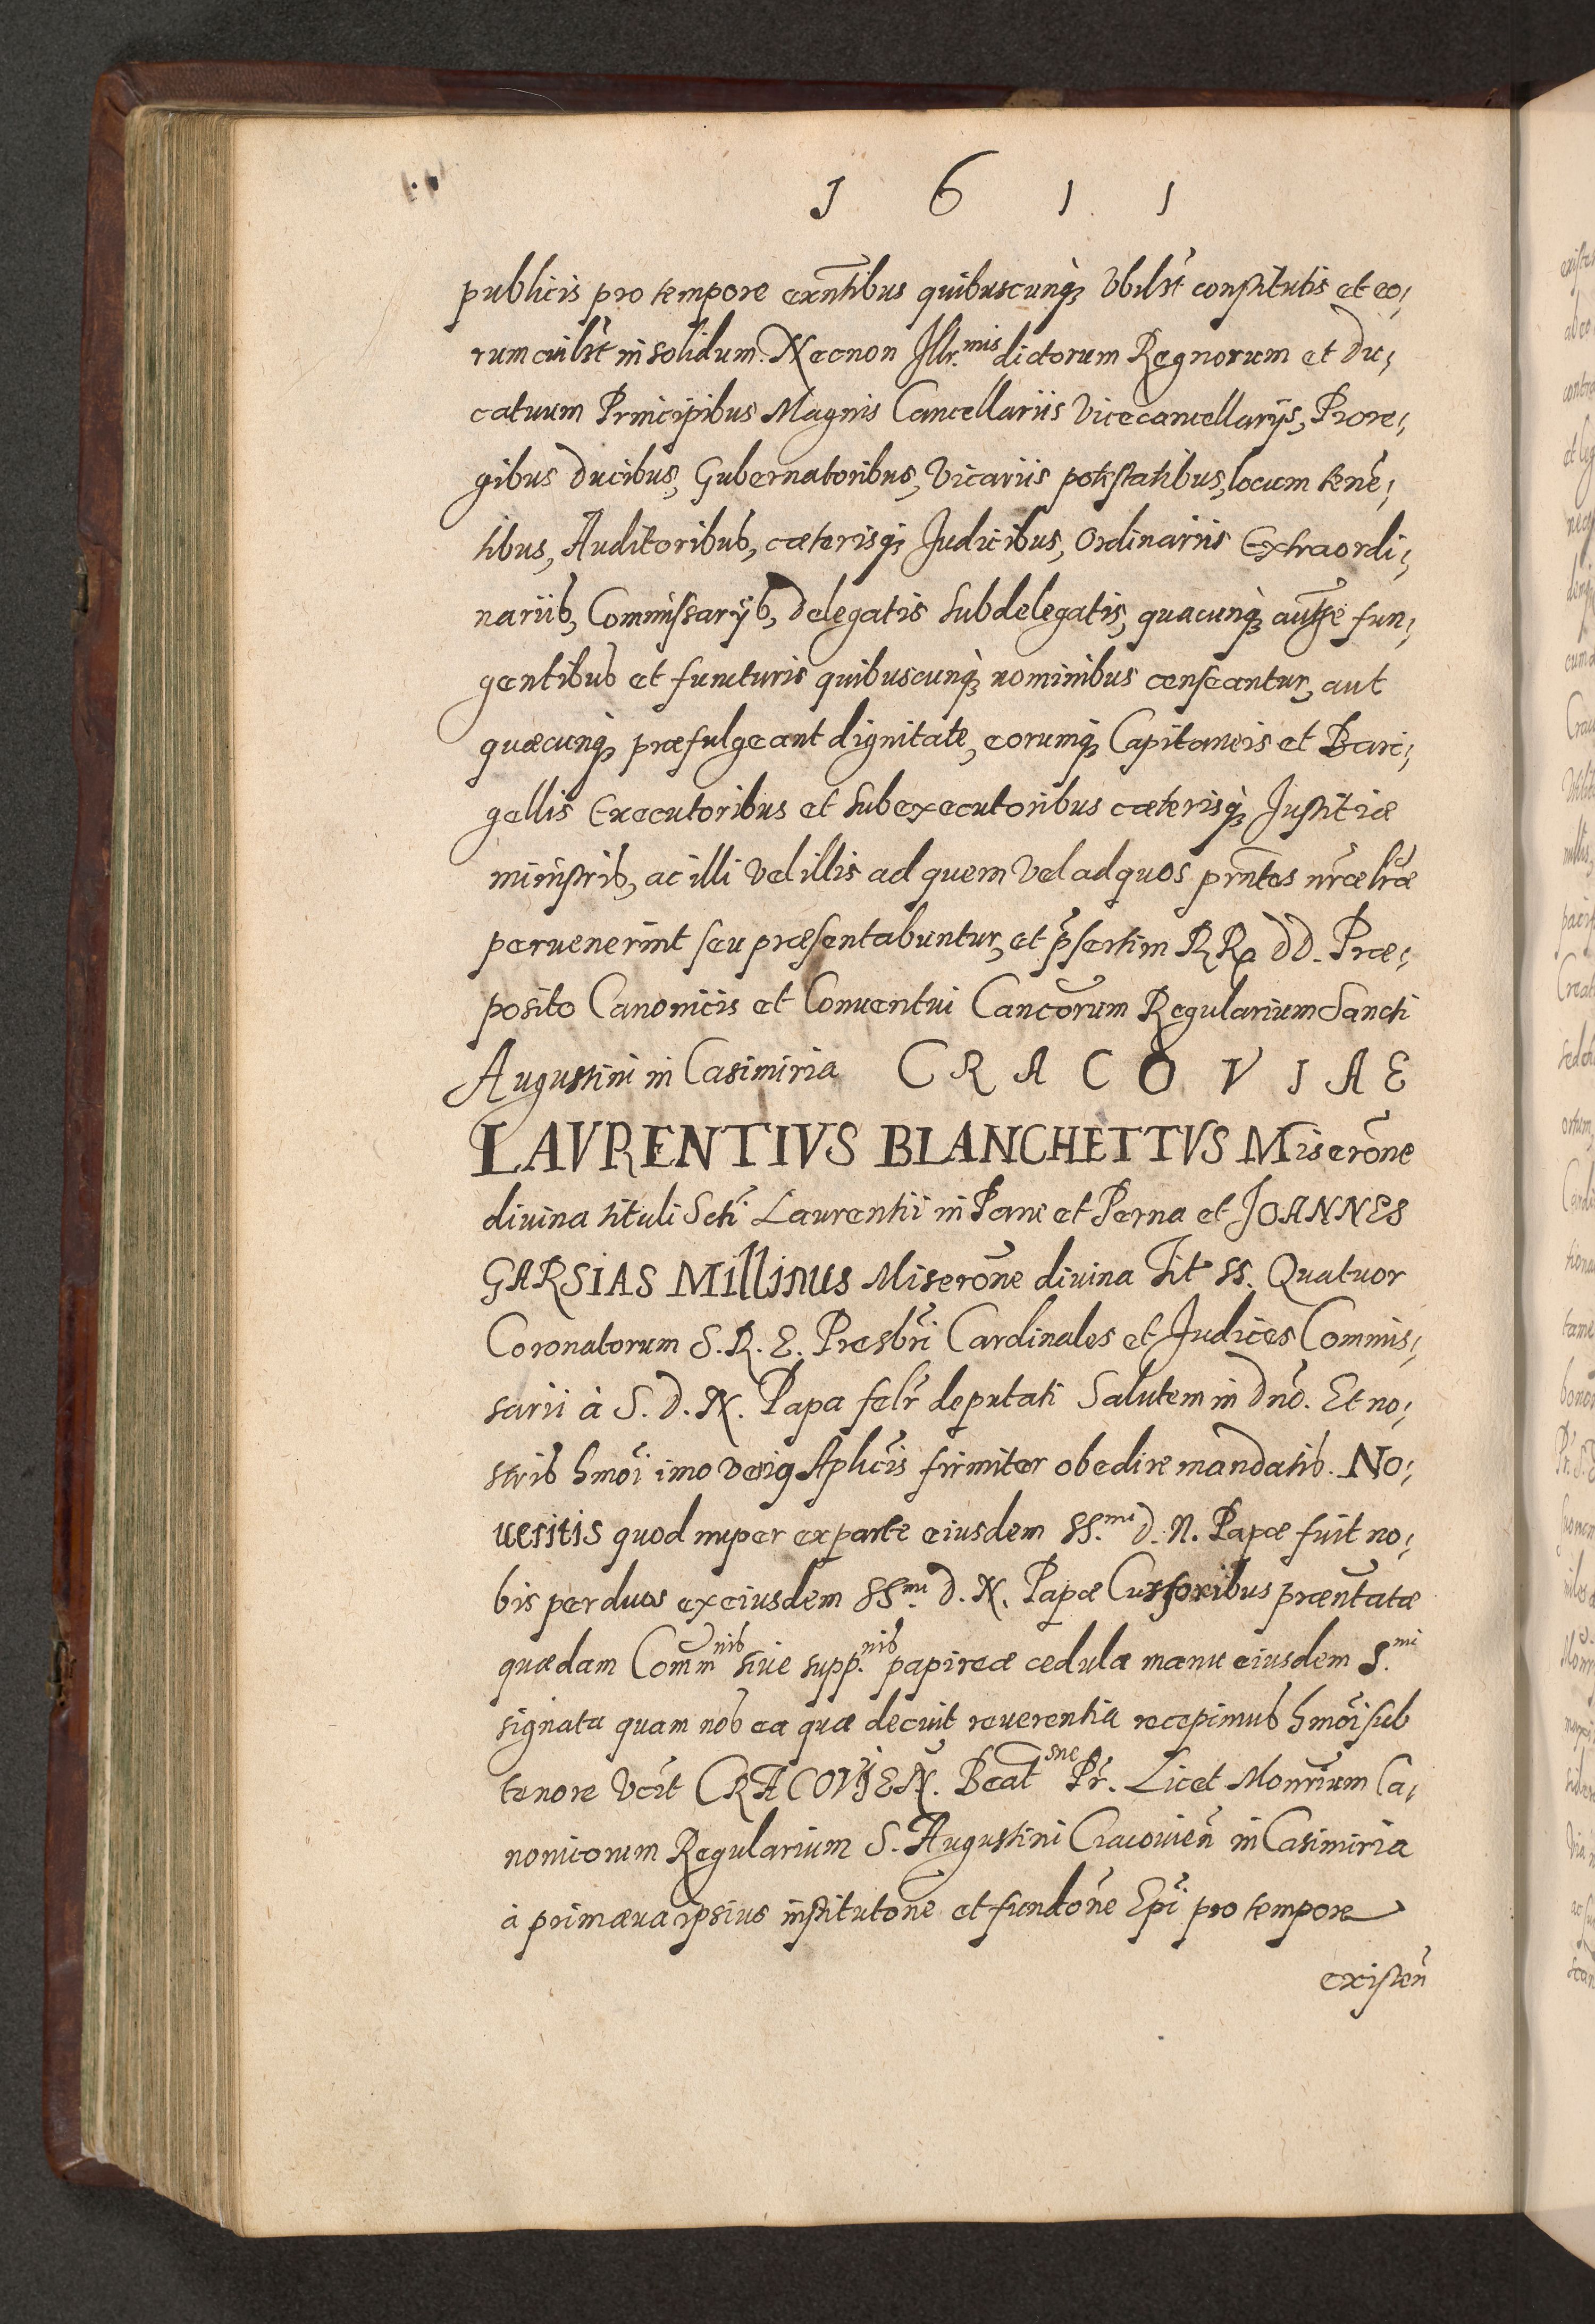 1 6 1 1
publicis pro tempore exñtibus quibuscunq; Vbil̃t constitutis et eo,
rum cuil̃t in solidum. Necnon Illr.mis dictorum Regnorum et Du,
catuum Principibus Magnis Cancellariis Vicecancellarÿs, Prore,
gibus Ducibus, Gubernatoribus, Vicariis potestatibus, locum tenẽ,
tibus, Auditoribus, cæterisq; Judicibus, Ordinariis Extraordi,
nariis, Commissarÿs, delegatis Subdelegatis, quacunq; fun,
gentibus et functuris quibuscunq; nominibus censeantur, aut
quæcunq; præfulgeant dignitate, eorumq; Capitaneis et Bari,
gellis Executoribus et Subexecutoribus cæterisq; Justitiæ
ministris, ac illi Vel illis ad quem Vel ad quos prñtes nr̃æ lr̃æ
peruenerint seu præsentabuntur, et p̃sertim RR. DD. Præ,
posito Canonicis et Conuentui Cancõrum Regularium Sancti
Augustini in Casimiria C R A C O V I A E
LAVRENTIVS BLANCHETTVS Miserõne
diuina tituli Scti Laurentii in Pane et Perna et JOANNES
GARSIAS Millinus Miserõne diuina Tit SS. Quatuor
Coronatorum S. R. E. Presbr̃i Cardinales et Judices Commis,
sarii à S. D. N. Papa felr̃ deputati Salutem in Dn̄o. Et no,
stris hmõi imo Veriq Aplicis firmiter obedire mandatis. No,
ueritis quod nuper ex parte eiusdem SS.mi D. N. Papæ fuit no,
bis per duos ex eiusdem SS.mi D. N. Papæ Cursoribus præntata
quædam Comm̃nis siue supp.nis papireæ cedula manu eiusdem S.mi
signata quam nos ea qua decuit reuerentia recepimus hmõi sub
tenore Vcit CRACOVIEÑ. Beatsne Pr̃. Licet Monr̃ium Ca,
nonicorum Regularium S. Augustini Cracouieñ in Casimiria
à primæua ipsius institutõne et fundõne Epĩ pro tempore
existeñ